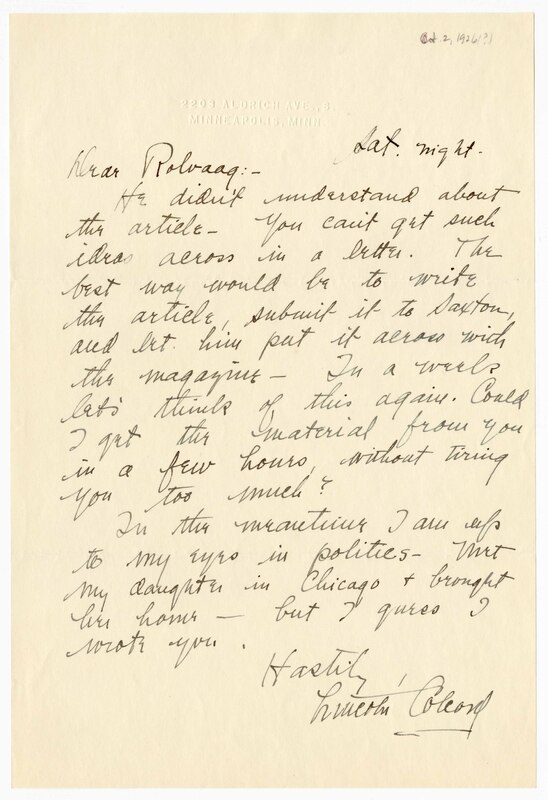 Oct. 2, 1926(?)
2203 ALDRICH AVE., S.
MINNEAPOLIS, MINN.
Sat. night.
Dear Rolvaag:-
He didn't understand about
the article - You can't get such
ideas across in a letter. The
best way would be to write
the article, submit it to Saxton,
and let him put it across with
the magazine - In a week
let's think of this again. Could
I get the material from you
in a few hours, without tiring
you too much?
In the meantime I am up
to my eyes in politics - Met
my daughter in Chicago + brought
her home - but I guess I
wrote you.
Hastily,
Lincoln Colcord